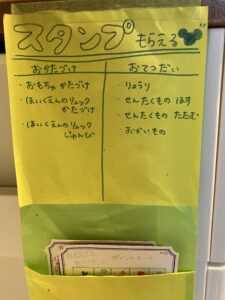 スタンプ もらえる
おかたづけ
・おもちゃ かたづけ
・ほいくえんのリュック
かたづけ
・ほいくえんのリュック
じゅんび
おてつだい
・りょうり
・せんたくもの ほす
・せんたくもの たたむ
・おかいもの
ポイントカード